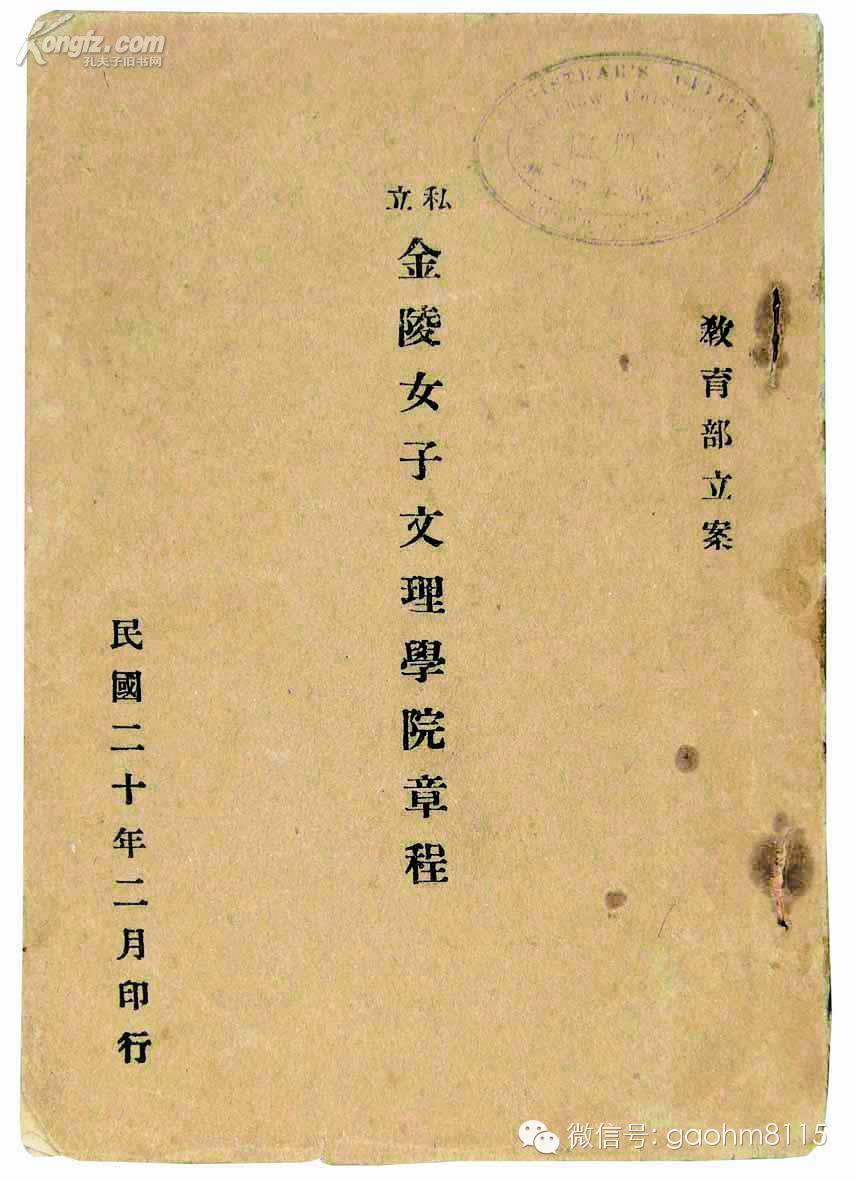 Kongfz.com
孔夫子旧书网
REGISTRAR'S OFFICE
教育部立案
私立
金陵女子文理學院章程
民國二十年二月印行
微信号: gaohm8115